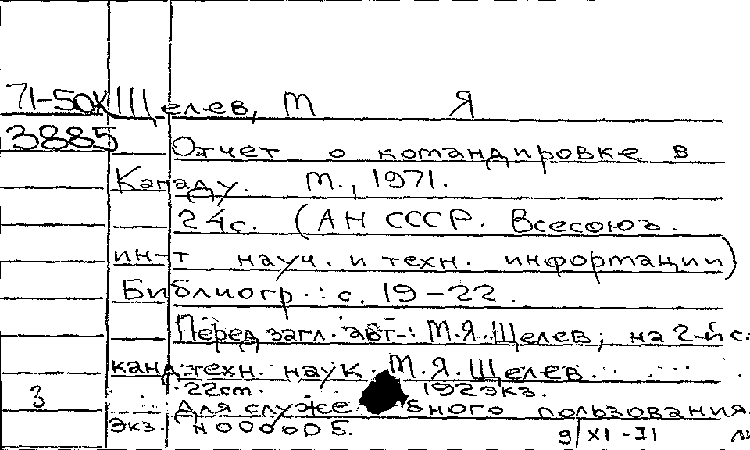 71-50К Щелев, М Я
3885
Отчет о командировке в
Канаду. М., 1971.
24с. (АН СССР. Всесоюз.
ин-т науч. и техн. информации)
Библиогр.: с. 19-22.
Перед загл. авт.: М.Я. Щелев; на 2-й с.:
канд. техн. наук М.Я. Щелев.
22см. 192экз.
3 Для служебного пользования.
Экз. N000005. 9/XI-71